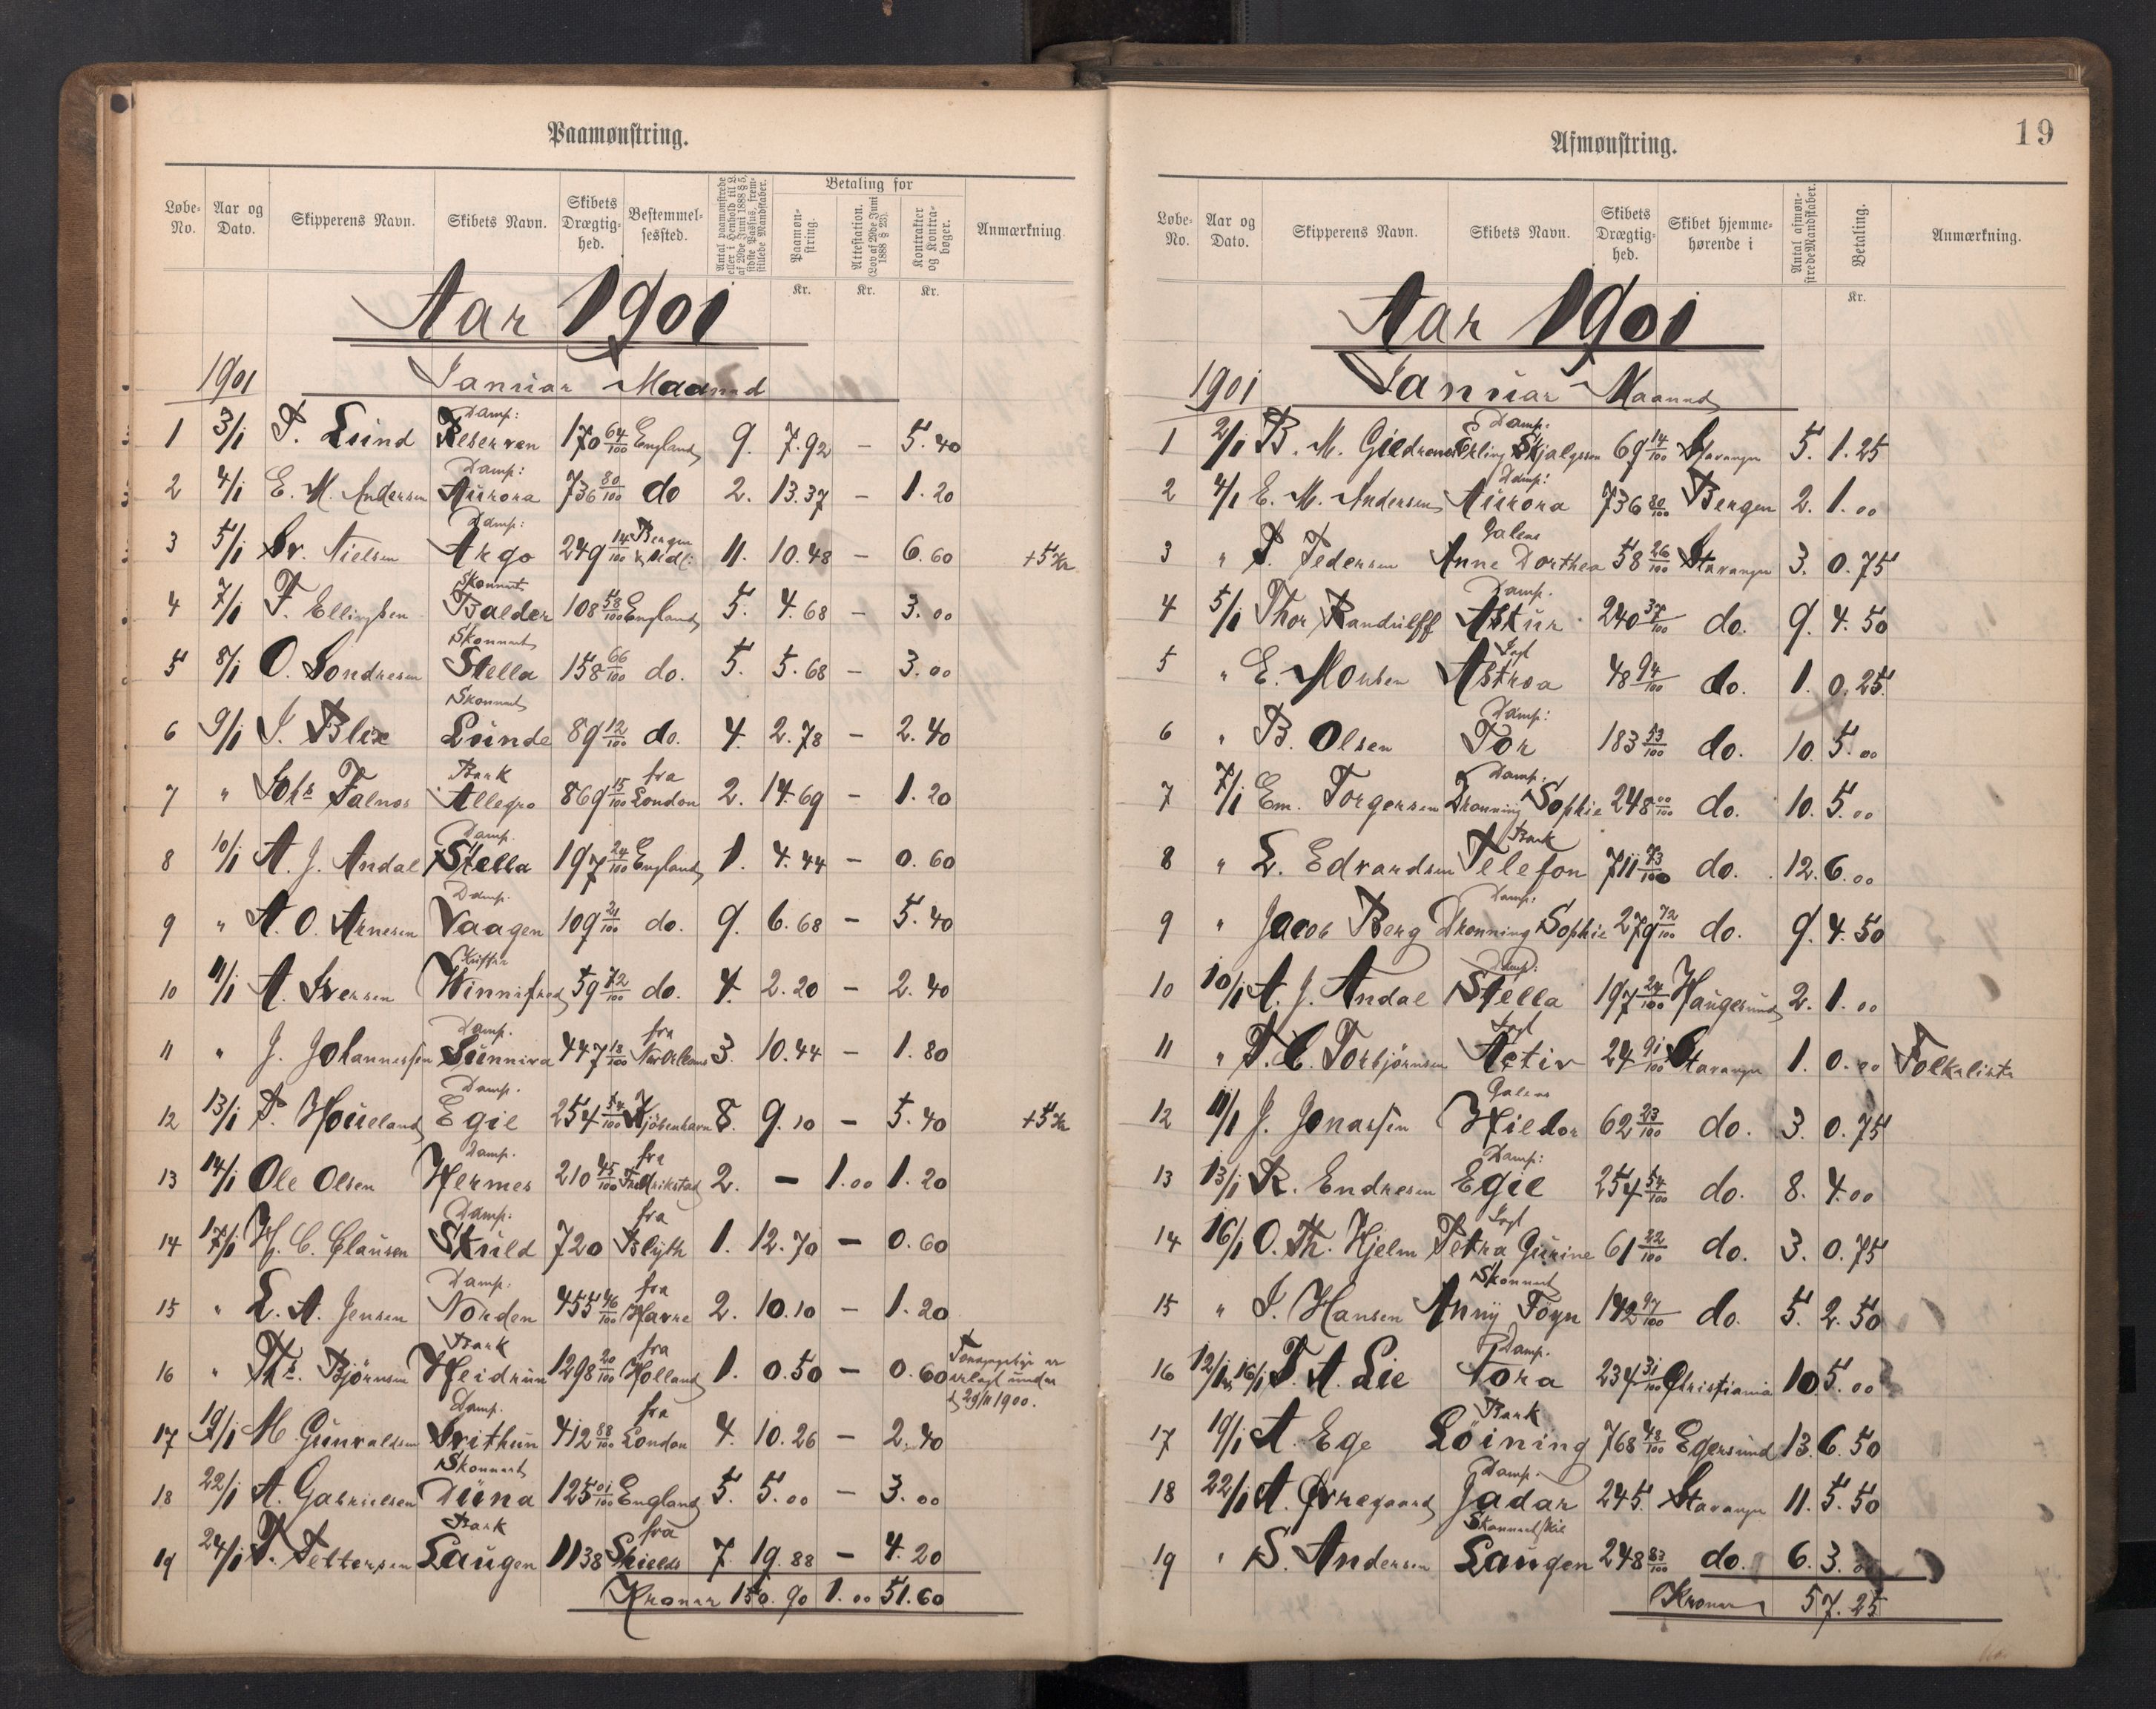 Paamønstring.
Løbe-No. Aar og Dato. Skipperens Navn. Skibets Navn. Skibets Drægtig-hed. Bestemmel-sessted. Antal paamønstrede eller i Henhold til L. af 29de Juni 1888 § 5, sidste Passus, frem-stillede Mandskaber. Betaling for Paamøn-string. Attestation. (Lov af 29de Juni 1888 § 23). Kontrakter og Kontra-bøger. Anmærkning
Kr. Kr. Kr.
Aar 1901
1901 Januar Maaned
1 3/1 T. Lund Damp: Reserven 170 64/100 England 9. 7.92 – 5.40
2 4/1 E. M. Andersen Damp: Aurora 736 80/100 do 2. 13.37 – 1.20
3 5/1 Sv. Nielsen Damp: Argo 249 14/100 Bergen 11. 10.48 – 6.60 +5 Kr
4 7/1 F. Ellingsen Skonnert Balder 108 58/100 England 5. 4.68 – 3.00
5 8/1 O. Sondresen Skonnert Stella 158 66/100 do. 5. 5.68 – 3.00
6 9/1 J. Blix Skonnert Lunde 89 12/100 do. 4. 2.78 – 2.40
7 " Johs Falnos Bark Allegro 869 15/100 fra London 2. 14.69 – 1.20
8 10/1 A. J. Andal Damp. Stella 197 24/100 England 1. 4.44 – 0.60
9 " A. O. Arnesen Damp. Vaagen 109 21/100 do. 9. 6.68 – 5.40
10 11/1 A. Iversen Kutter Winnifred 59 72/100 do. 4. 2.20 – 2.40
11 " J. Johannessen Damp. Sunniva 447 18/100 fra New Orleans 3. 10.44 – 1.80
12 13/1 P. Houeland Damp. Egil 254 54/100 Kjöbenhavn 8. 9.10 – 5.40 +5 Kr
13 14/1 Ole Olsen Damp. Hermes 210 45/100 fra Fredrikstad 2. – 1.00 1.20
14 17/1 H. C. Clausen Damp: Skuld 720 fra Blyth 1. 12.70 – 0.60
15 " L. A. Jensen Damp. Norden 455 46/100 fra Havre 2. 10.10 – 1.20
16 " Ths. Bjørnsen Bark Heidrun 1298 20/100 fra Holland 1. 0.50 – 0.60 er erlagt under 29/11 1900.
17 19/1 M. Gunvaldsen Damp. Svithun 412 88/100 fra London 4. 10.26 – 2.40
18 22/1 A. Gabrielsen Skonnert Düna 125 01/100 England 5. 5.00 – 3.00
19 24/1 P. Pettersen Bark Laugen 1138 fra Shields 7. 19.88 – 4.20
Kroner 150.90 1.00 51.60
19
Afmønstring.
Løbe-No. Aar og Dato. Skipperens Navn. Skibets Navn. Skibets Drægtig-hed. Skibet hjemme-hørende i Antal afmøn-strede Mandskaber. Betaling. Anmærkning.
Kr.
Aar 1901
1901 Januar Maaned
1 2/1 B. M. Damp. Erling Skjalgsson 69 14/100 Stavanger 5. 1.25
2 4/1 E. M. Andersen Damp: Aurora 736 80/100 Bergen 2. 1.00
3 " P. Pedersen Galeas Anne Dorthea 58 26/100 Stavanger 3. 0.75
4 5/1 Thor Randulff Damp. Astur 240 37/100 do. 9. 4.50
5 " E. Monsen Jagt Astrea 48 94/100 do. 1. 0.25.
6 " B. Olsen Damp: Tor 183 53/100 do. 10. 5.00
7 7/1 Em. Torgersen Damp: Dronning Sophie 248 00/100 do. 10. 5.00
8 " L. Edvardsen Bark Telefon 711 73/100 do. 12. 6.00
9 " Jacob Berg Damp: Dronning Sophie 279 72/100 do. 9. 4.50
10 10/1 A. J. Andal Damp: Stella 197 24/100 Haugesund 2. 1.00
11 " T. C. Torbjörnsen Jagt Activ 24 91/100 Stavanger 1. 0.00 Folkeliste
12 11/1 J. Jonassen Galeas Hildor 62 23/100 do. 3. 0.75
13 13/1 R. Endresen Damp: Egil 254 54/100 do. 8. 4.00
14 16/1 O. Th. Hjelm Jagt Petra Gurine 61 22/100 do. 3. 0.75
15 " J. Hansen Skonnert Anny Foyn 142 97/100 do. 5. 2.50
16 12/1 16/1 T. A. Lie Damp. Nora 234 31/100 Christiania 10 5.00
17 19/1 A. Ege Bark Löining 768 48/100 Egersund 13. 6.50
18 22/1 A. Øvregaard Damp. Jadar 245. Stavanger 11. 5.50
19 " S. Andersen Skonnertskib Laugen 248 83/100 do. 6. 3.00
Kroner 57.25